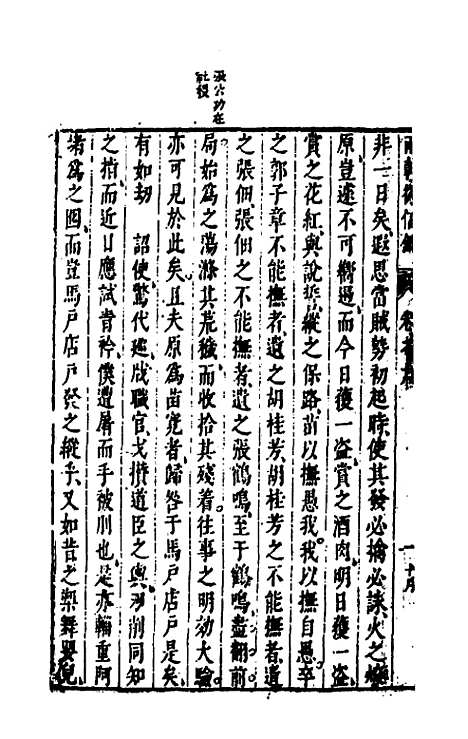 張公功在
社稷
非一日矣遐思當賊勢初起除使其發必擒必誅火之燎
原豈遂不可嚮邇而今日獲一盜賞之酒肉明日獲一盜
賞之花紅與說誓縱之保路苗以撫愚我我以撫自愚卒
之郭子章不能撫者遺之胡桂芳胡桂芳之不能撫者遺
之張佃張佃之不能撫者遺之張鶴鳴至于鶴鳴盡翻前
局始為之蕩滌其荒穢而收拾其殘着往事之明効大驗
亦可見於此矣且夫原為苗寃者歸咎于馬戶店戶是矣
有如刧 詔使驚代廵戕職官戈攢道臣之輿刅削同知
之指而近日應試青衿僕遭屠而手被刖也是亦輜重阿
堵為之囮而豈馬戶店戶發之縱乎又如昔之槊舞嬰兒